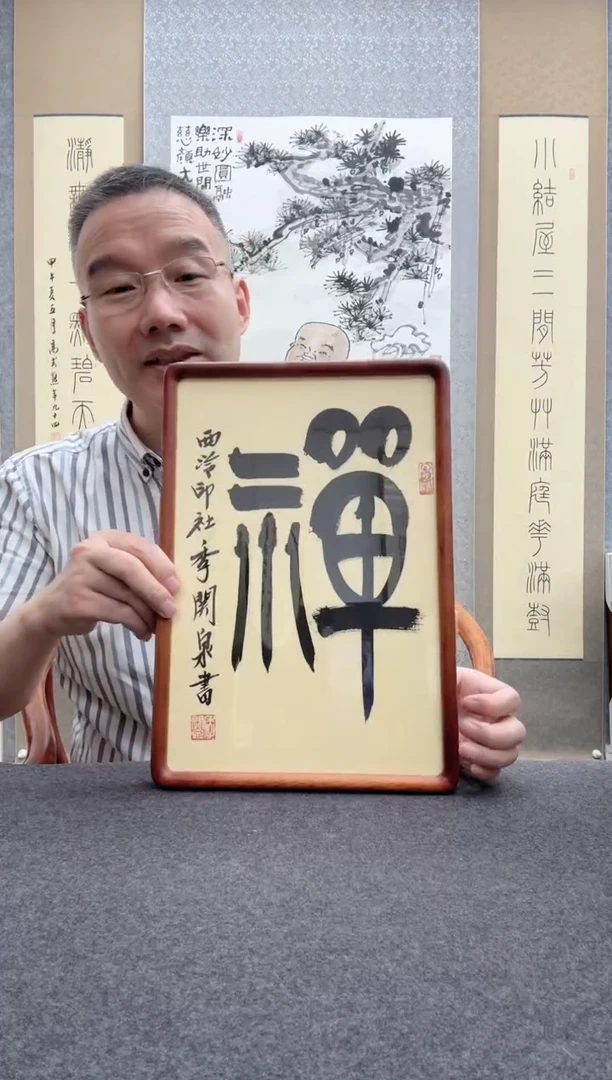 小結屋三間芳艸滿庭華滿尌
深妙圓融
樂助世間
慈顏大
碧天
甲午夏五月高式熊年九十四
禪
西泠印社季関泉書